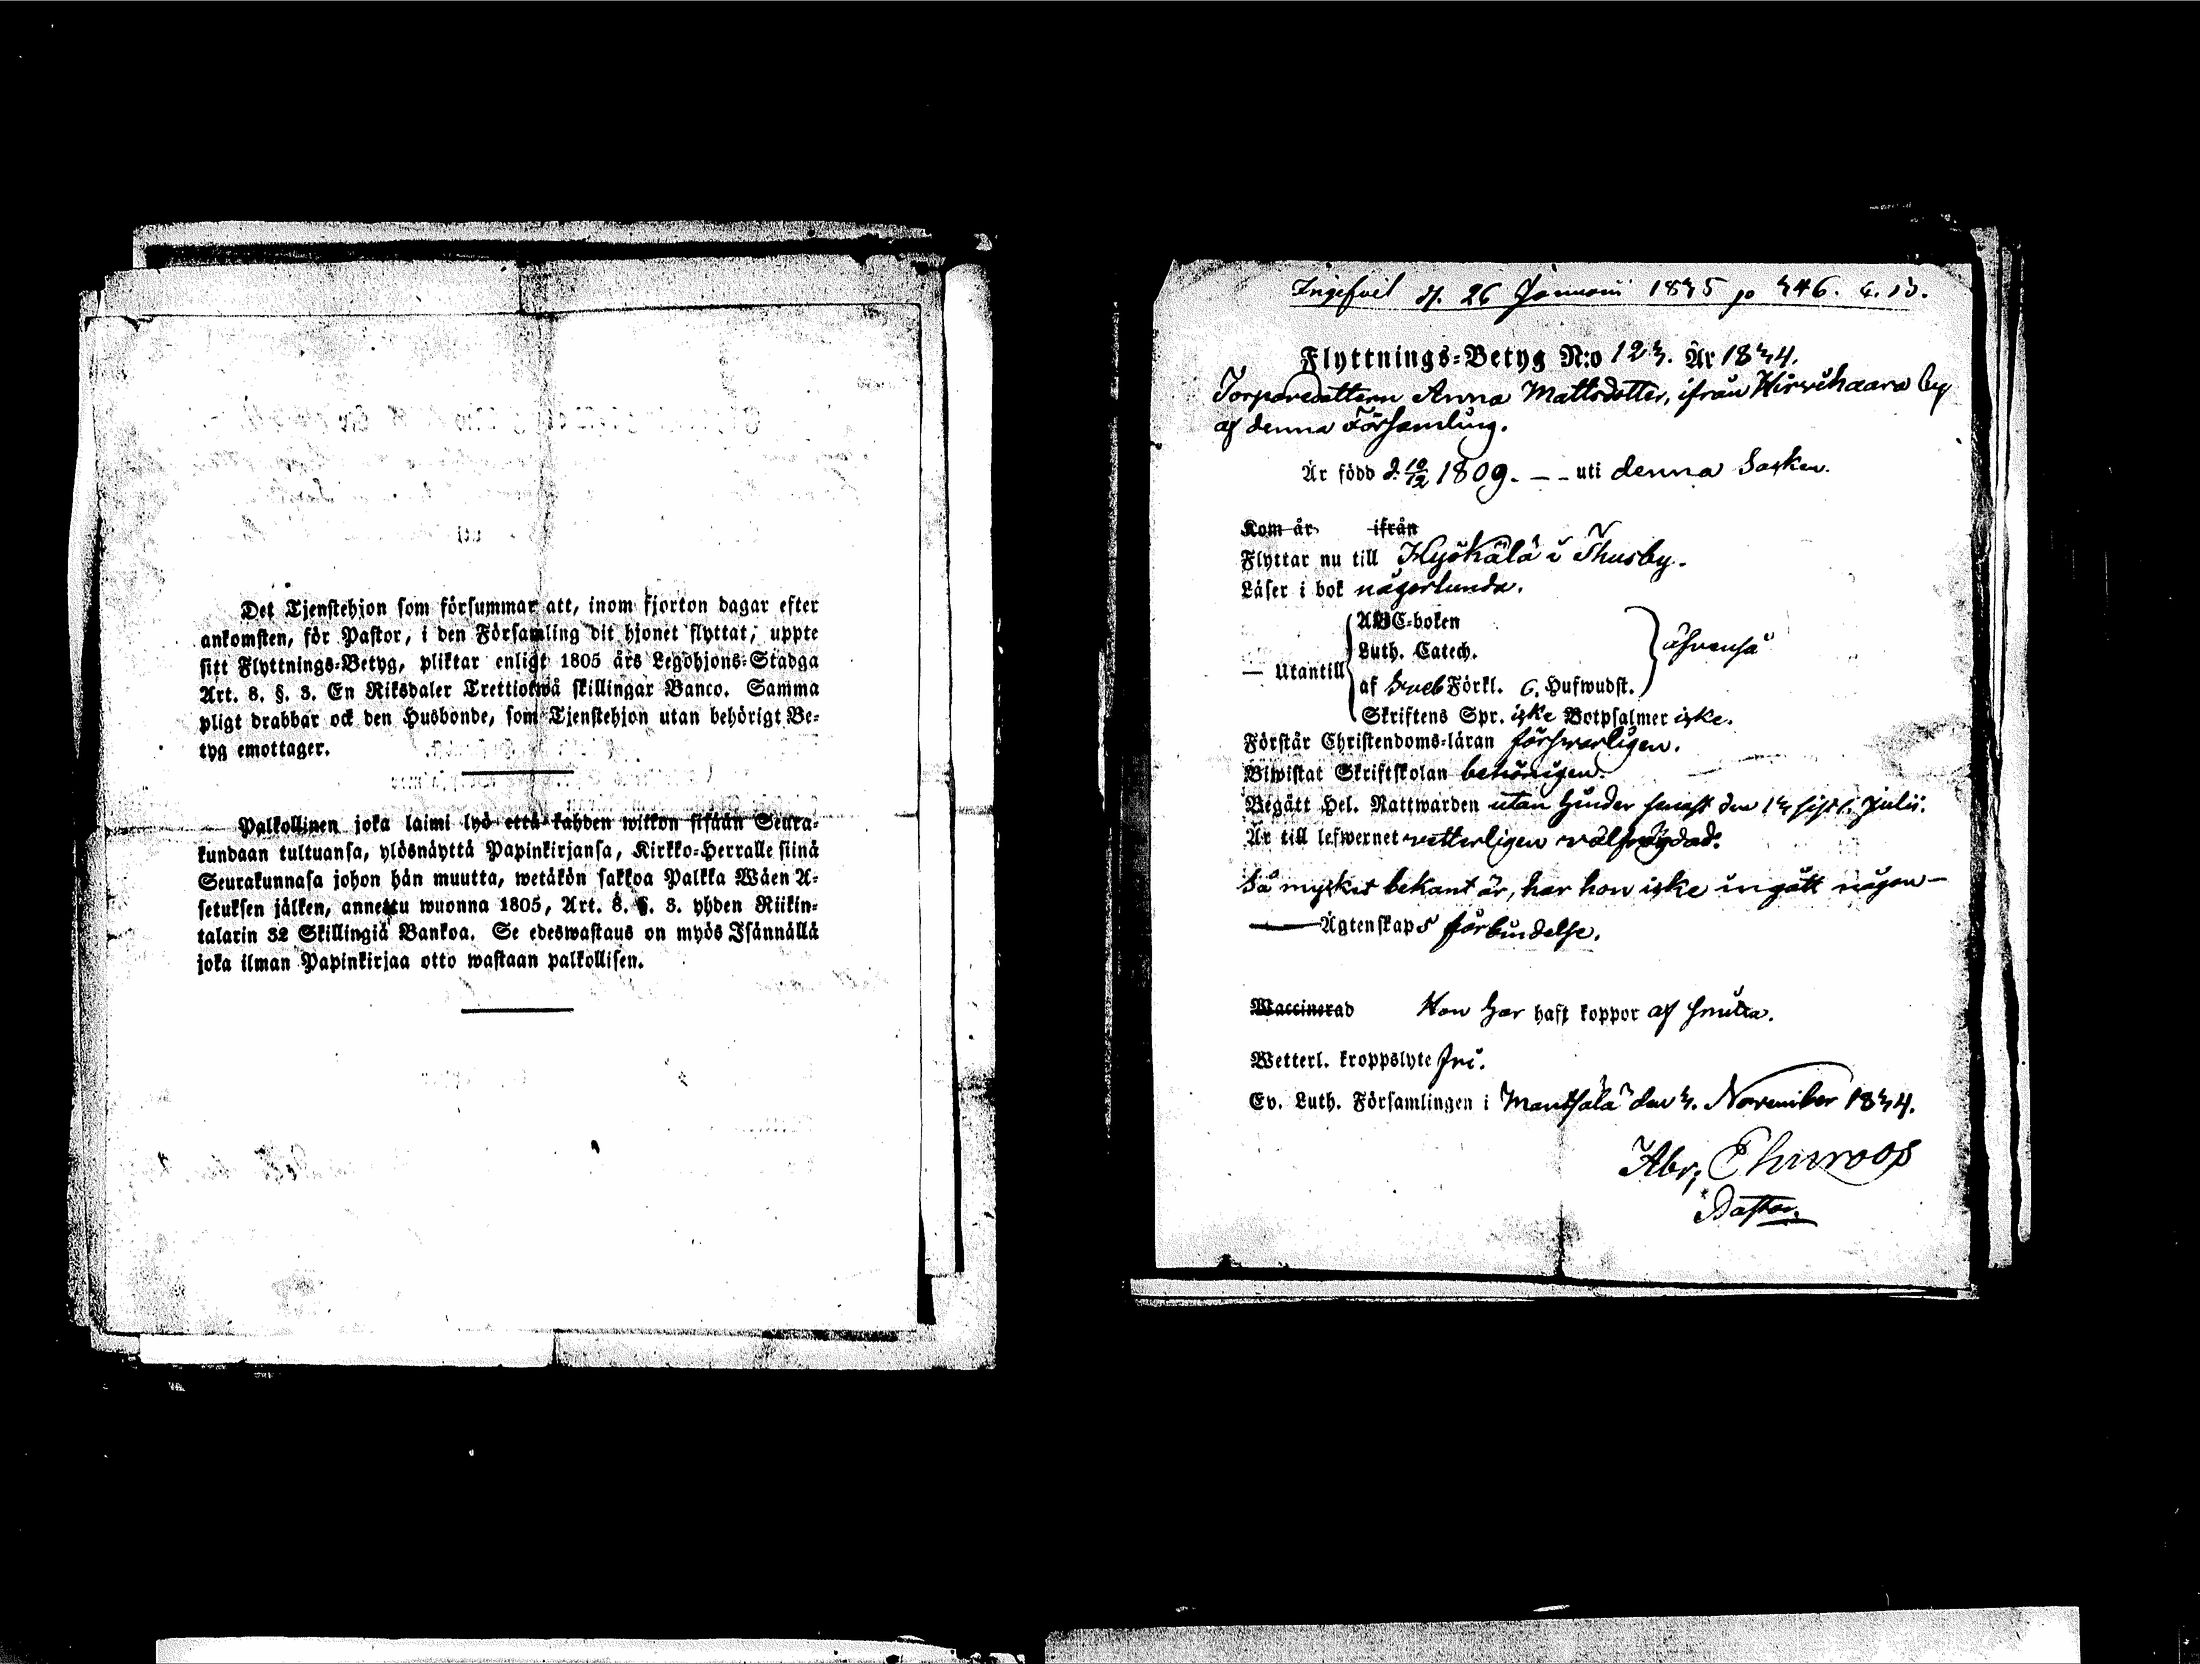 Det Tjenstehjon som försummar att, inom fjorton dagar efter
ankomsten, för Pastor, i den Församling dit hjonet flyttat, uppte
sitt Flyttnings-Betyg, pliktar enligt 1805 års Legohjons-Stadga
Art. 8. §. 3. En Riksdaler Trettiotwå skillingar Banco. Samma
pligt drabbar ock den Husbonde, som Tjenstehjon utan behörigt Be-
tyg emottager.
Palkollinen joka laimi lyö että kahden wiikon sisään Seura-
kundaan tultuansa, ylösnäyttä Papinkirjansa, Kirkko-Herralle siinä
Seurakunnasa johon hän muutta, wetäkön sakkoa Palkka Wäen A-
setuksen jälken, annettu wuonna 1805, Art. 8. §. 3. yhden Riikin-
talarin 32 Skillingiä Bankoa. Se edeswastaus on myös Isännällä
joka ilman Papinkirjaa otto wastaan palkollisen.
d. 26 Januarii 1835 p 346.
Flyttnings-Betyg N:o 123. År 1834.
Torparedottern Anna Mattsdotter, ifrån Hirvihaara by
af denna Församling.
Är född d. 10/12 1809. — — uti denna Socken.
Kom år ifrån
Flyttar nu till Hyökälä i Thusby.
Läser i bok någorlunda.
— Utantill
ABC-boken
Luth. Catech.
af Sveb Förkl. 6. Hufwudst.
äfvenså
Skriftens Spr. icke Botpsalmer icke.
Förstår Christendoms-läran försvarligen.
Biwistat Skriftskolan behörigen.
Begått Hel. Nattwarden utan hinder senast den 13 sistl. Julii.
Är till lefwernet vetterligen välfrägdad.
Så mycket bekant är, har hon icke ingått någon —
— Ägtenskaps förbindelse.
Waccinerad Hon har haft koppor af smitta.
Wetterl. kroppslyte fri.
Ev. Luth. Församlingen i Mäntsälä den 3. November 1834.
Abr. Ehnroos
Pastor.